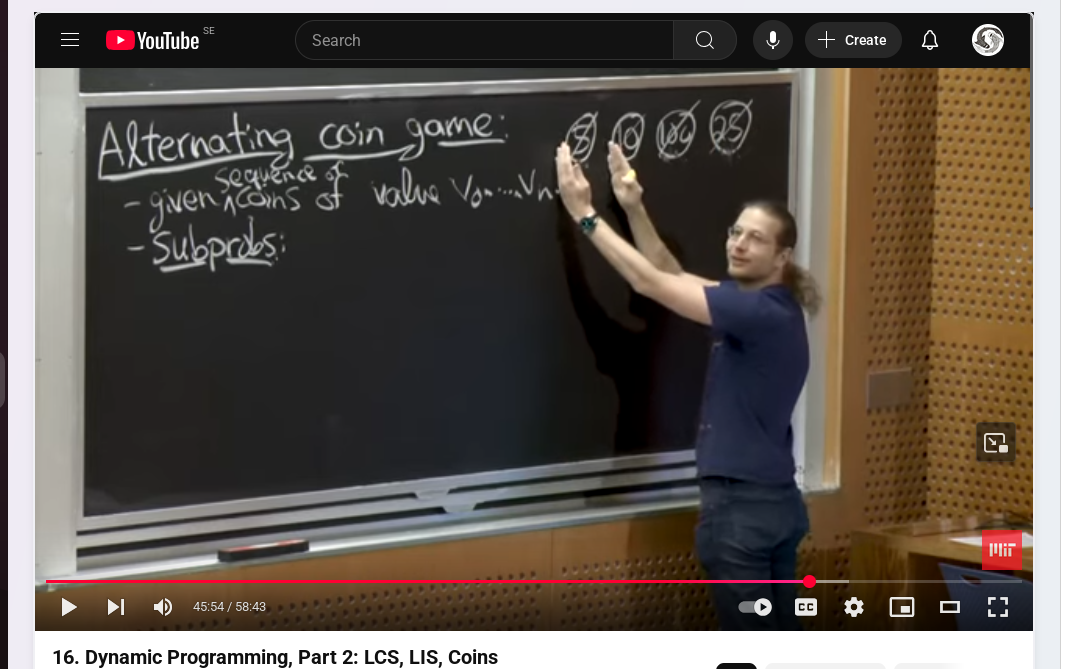 YouTube SE
Search
Create
Alternating coin game:
5 10 100 25
- given sequence of coins of value V₀, ... Vₙ₋
- Subprobs:
MIT
45:54 / 58:43
CC
16. Dynamic Programming, Part 2: LCS, LIS, Coins